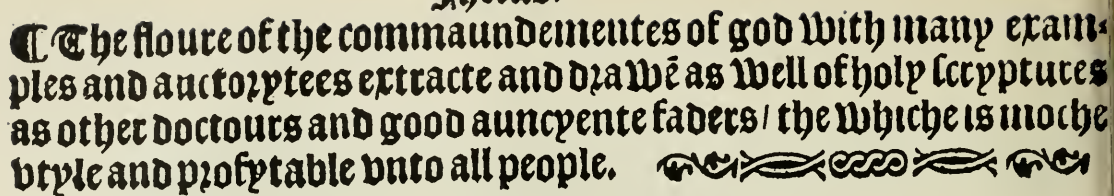 ¶ The floure of the commaundementes of god with many exam⸗
ples and auctorytees extracte and drawẽ as well of holy scryptures
as other doctours and good auncyente faders/ the whiche is moche
vtyle and profytable vnto all people.